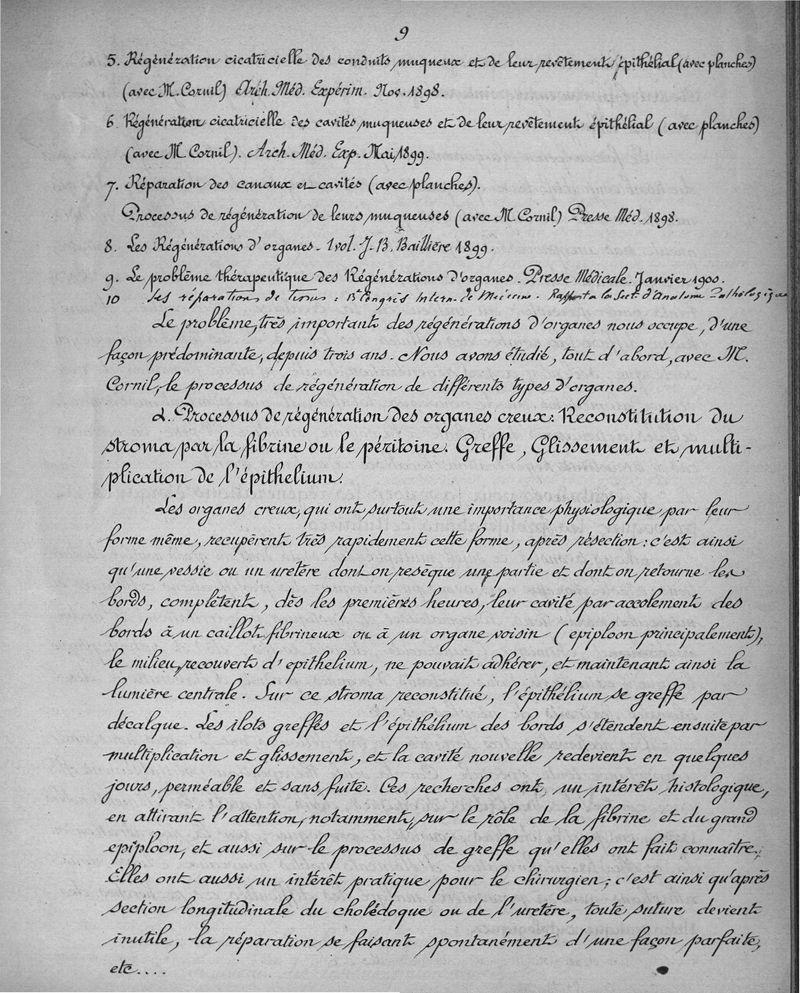 9
5. Régénération cicatricielle des conduits muqueux et de leur revêtement épithélial (avec planches)
(avec M. Cornil) Arch. Méd. Expérim. Nov. 1898.
6 Régénération cicatricielle des cavités muqueuses et de leur revêtement épithélial (avec planches)
(avec M. Cornil). Arch. Méd. Exp. Mai 1899.
7. Réparation des canaux et cavités (avec planches).
Processus de régénération de leurs muqueuses (avec M. Cornil) Presse Méd. 1898.
8. Les Régénérations d'organes. 1 vol. J. B. Baillière 1899.
9. Le problème thérapeutique des Régénérations d'organes. Presse Médicale. Janvier 1900.
10 Les réparations de tissus : Congrès Intern. de Médecine. Rapport à la Sect. d'Anatomie Pathologique
Le problème, très important des régénérations d'organes nous occupe, d'une
façon prédominante, depuis trois ans. Nous avons étudié, tout d'abord, avec M.
Cornil, le processus de régénération de différents types d'organes.
α. Processus de régénération des organes creux. Reconstitution du
stroma par la fibrine ou le péritoine. Greffe, Glissement et multi-
plication de l'épithelium.
Les organes creux, qui ont surtout une importance physiologique par leur
forme même, recupèrent très rapidement cette forme, après résection : c'est ainsi
qu'une vessie ou un uretère dont on resèque une partie et dont on retourne les
bords, complètent, dès les premières heures, leur cavité par accolement des
bords à un caillot fibrineux ou à un organe voisin (epiploon principalement),
le milieu, recouvert d'epithelium, ne pouvait adhérer, et maintenant ainsi la
lumière centrale. Sur ce stroma reconstitué, l'épithélium se greffe par
décalque. Les ilots greffés et l'épithélium des bords s'étendent ensuite par
multiplication et glissement, et la cavité nouvelle redevient en quelques
jours, perméable et sans fuite. Ces recherches ont un intérêt histologique,
en attirant l'attention, notamment, sur le rôle de la fibrine et du grand
epiploon, et aussi sur le processus de greffe qu'elles ont fait connaître.
Elles ont aussi un intérêt pratique pour le chirurgien ; c'est ainsi qu'après
section longitudinale du cholédoque ou de l'uretère, toute suture devient
inutile, la réparation se faisant spontanément d'une façon parfaite,
etc....